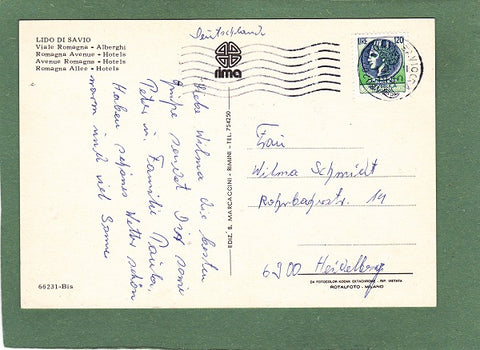 LIDO DI SAVIO
Viale Romagna - Alberghi
Romagna Avenue - Hotels
Avenue Romagna - Hotels
Romagna Allee - Hotels
Deutschland
rima
LIRE 120
Liebe Wilma die besten
senden Dir
Peter u. Familie
Haben schönes Wetter schön
warm und viel Sonne
EDIZ. B. MARCACCINI - RIMINI - TEL. 754250
Frau
Wilma Schmidt
Rohrbacherstr. 19
6900 Heidelberg
66231-Bis
DA FOTOCOLOR KODAK EKTACHROME - RIP. VIETATA
ROTALFOTO - MILANO